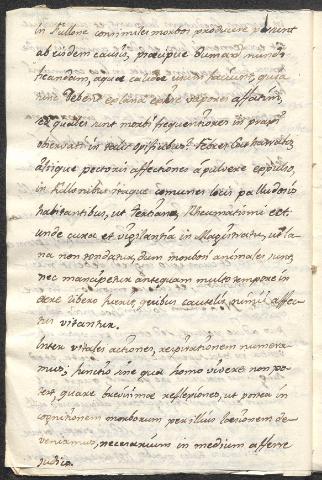 in Fullone consimiles morbos producere possint
ab eisdem causis, præcipue dum ad mundi
ficandam, aqua calida utuntur, quia
tunc debent ex lana vapores
et quales sunt morbi frequentiores in
observati in talis opificibus?
aliique pectoris affectiones a pulvere
in fullonibus itaque comunes locis paludosis
habitantibus, ut tertiana, Rheumatismi ect:
unde curæ et vigilantia in Magistratu, ut la-
na non tondatur, dum morbosi animales sunt,
nec mancipetur antequam multo tempore in
aere libero fuerit, quibus cautelis simil affec-
tus vitantur.
Inter vitales actiones, respirationem numera-
mus; functio sine qua homo vivere non po-
test, quare brevissimæ reflexiones, ut postea in
cognitionem morborum per illius læsionem de-
veniamus, necessarium in medium afferre
judico.